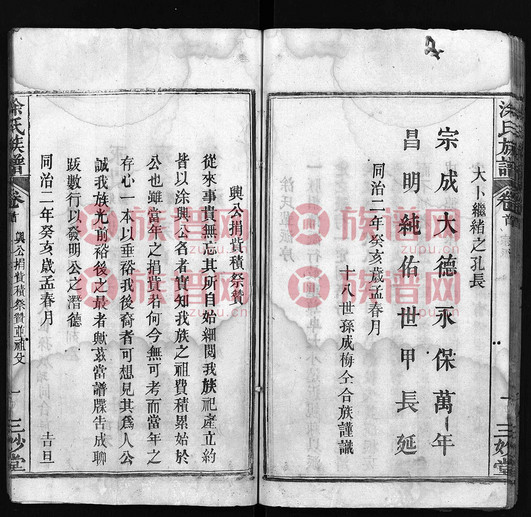 涂氏族譜
卷首
三妙堂
大卜繼緒之孔長
宗成大德 永保萬年
昌明純佑 世甲長延
同治二年癸亥歲孟春月
十八世孫成梅仝合族謹識
興公捐貲積祭贊
從來事貴無忘其所自始細閱我族祀產立約
皆以涂興公名者實知我族之祖費積累始於
公也雖當年之捐貲若何今無可考而當年之
存心一本以垂裕我後裔者可想見其為人公
誠我族光前裕後之最者歟茲當譜牒告成聊
跋數行以發明公之潛德
同治二年癸亥歲孟春月 吉旦
涂氏族譜
卷首
興公捐貲積祭贊
一
三妙堂
族谱网
zupu.cn